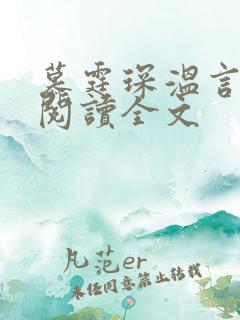 墓霆琛温言
閱讀全文
凡范er
未经同意禁止转载